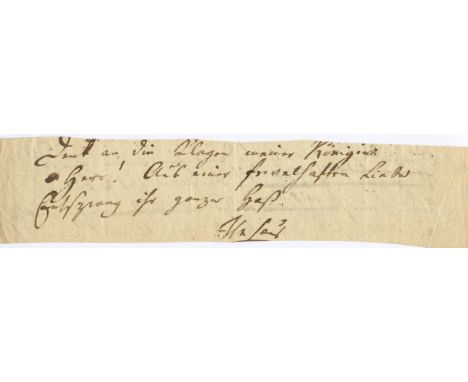 Denk an die Klagen meiner Königin
O Herr! Aus einer frevelhaften Liebe
Entsprang ihr ganzer Haß.